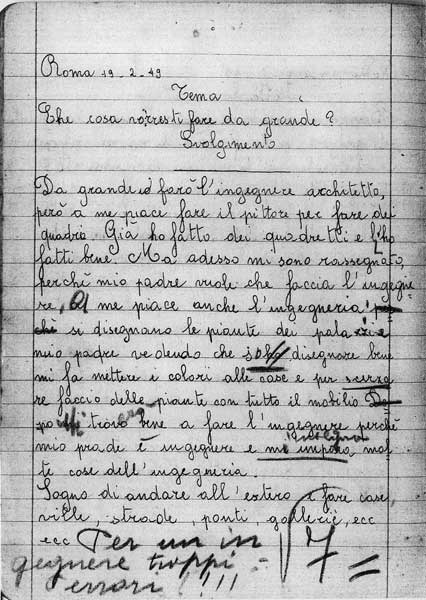 Roma 19-2-49
Tema
Che cosa vorresti fare da grande?
Svolgimento
Da grande io farò l'ingegnere architetto,
però a me piace fare il pittore per fare dei
quadri. Già ho fatto dei quadretti e l'ho
fatti bene. Ma adesso mi sono rassegnato,
perchè mio padre vuole che faccia l'ingegne
re. A me piace anche l'ingegneria per
chè si disegnano le piante dei palazzi e
mio padre vedendo che so disegnare bene
mi fa mettere i colori alle case e per
re faccio delle piante con tutto il mobilio. Do
po trovo bene a fare l'ingegnere perchè
mio prade è ingegnere e mi impara mol
te cose dell'ingegneria.
Sogno di andare all'estero e fare case,
ville, strade, ponti, gallerie, ecc
ecc Per un in
gegnere troppi
errori!!!!
7=